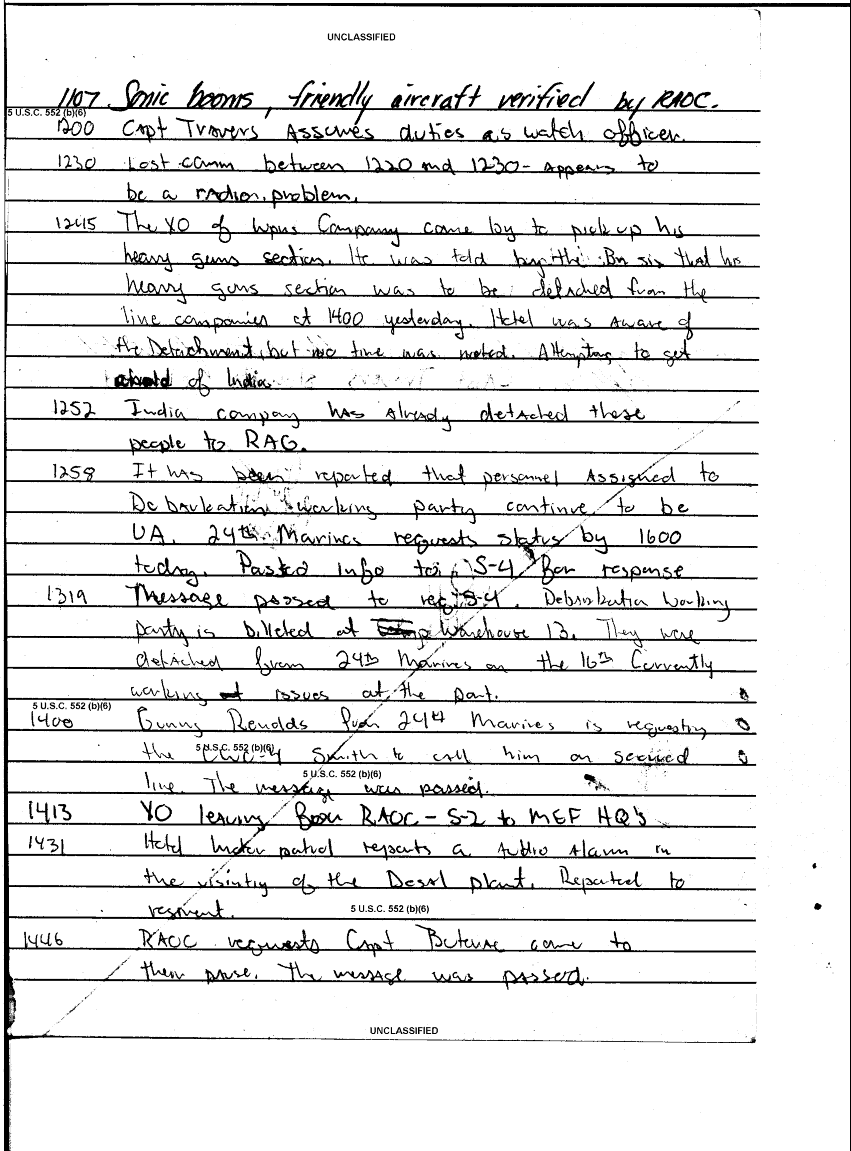 UNCLASSIFIED
1107 Sonic booms, friendly aircraft verified by RAOC.
5 U.S.C. 552 (b)(6)
1200 Capt Travers Assumes duties as watch officer.
1230 Lost comm between 1220 and 1230 - Appears to
be a radion problem.
1245 The XO of wpns Company came by to pick up his
heavy guns section. He was told by the Bn six that his
heavy guns section was to be detached from the
line companies at 1400 yesterday. Hotel was aware of
the Detachment, but no time was noted. Attempting to get
of India.
1252 India company has already detached these
people to RAG.
1258 It has been reported that personnel Assigned to
Debarkation working party continue to be
UA. 24th Marines requests status by 1600
today. Passed info to S-4 for response
1319 Message passed to reg S-4. Debarkation Working
party is billeted at Warehouse 13. They were
detached from 24th Marines on the 16th Currently
working issues at the port.
5 U.S.C. 552 (b)(6)
1400 Gunny from 24th Marines is requesting
5 U.S.C. 552 (b)(6)
the CWO-4 Smith to call him on secured
5 U.S.C. 552 (b)(6)
line. The message was passed.
1413 XO leaving from RAOC - S-2 to MEF HQ's
1431 Hotel patrol reports a Audio Alarm in
the visintiy of the Desal plant. Reported to
regiment.
5 U.S.C. 552 (b)(6)
1446 RAOC requests Capt come to
them The message was passed.
UNCLASSIFIED